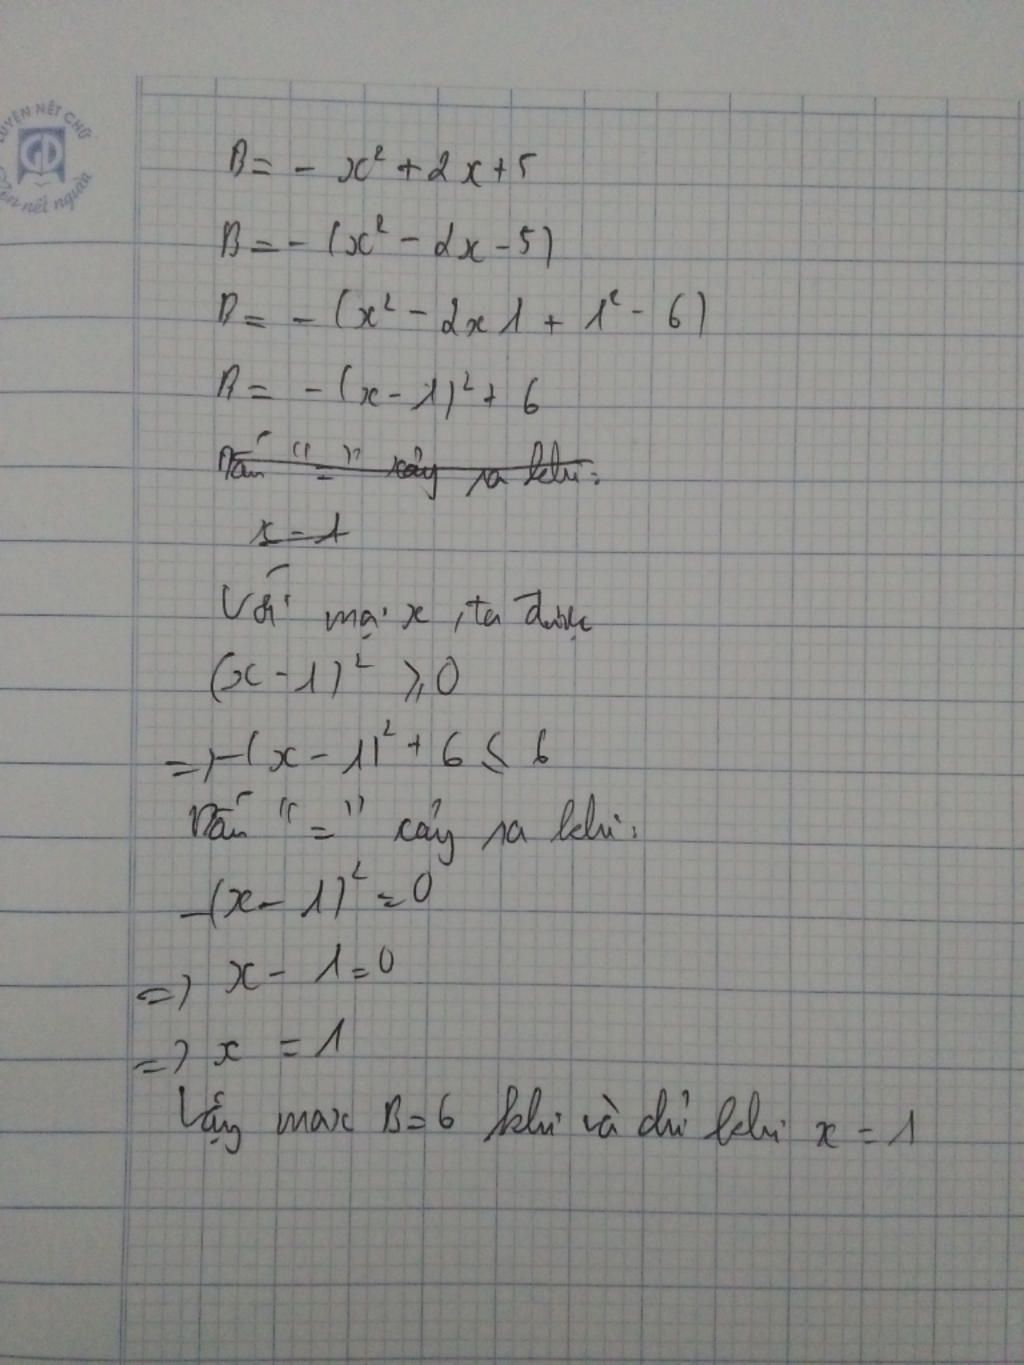 LUYỆN NÉT CHỮ
Rèn nết người
B = - x² + 2x + 5
B = - (x² - 2x - 5)
B = - (x² - 2x1 + 1² - 6)
B = - (x - 1)² + 6
Dấu "=" xảy ra khi:
x = 1
Với mọi x, ta được
(x - 1)² ⩾ 0
=> -(x - 1)² + 6 ≤ 6
Dấu "=" xảy ra khi:
-(x - 1)² = 0
=> x - 1 = 0
=> x = 1
Vậy max B = 6 khi và chỉ khi x = 1